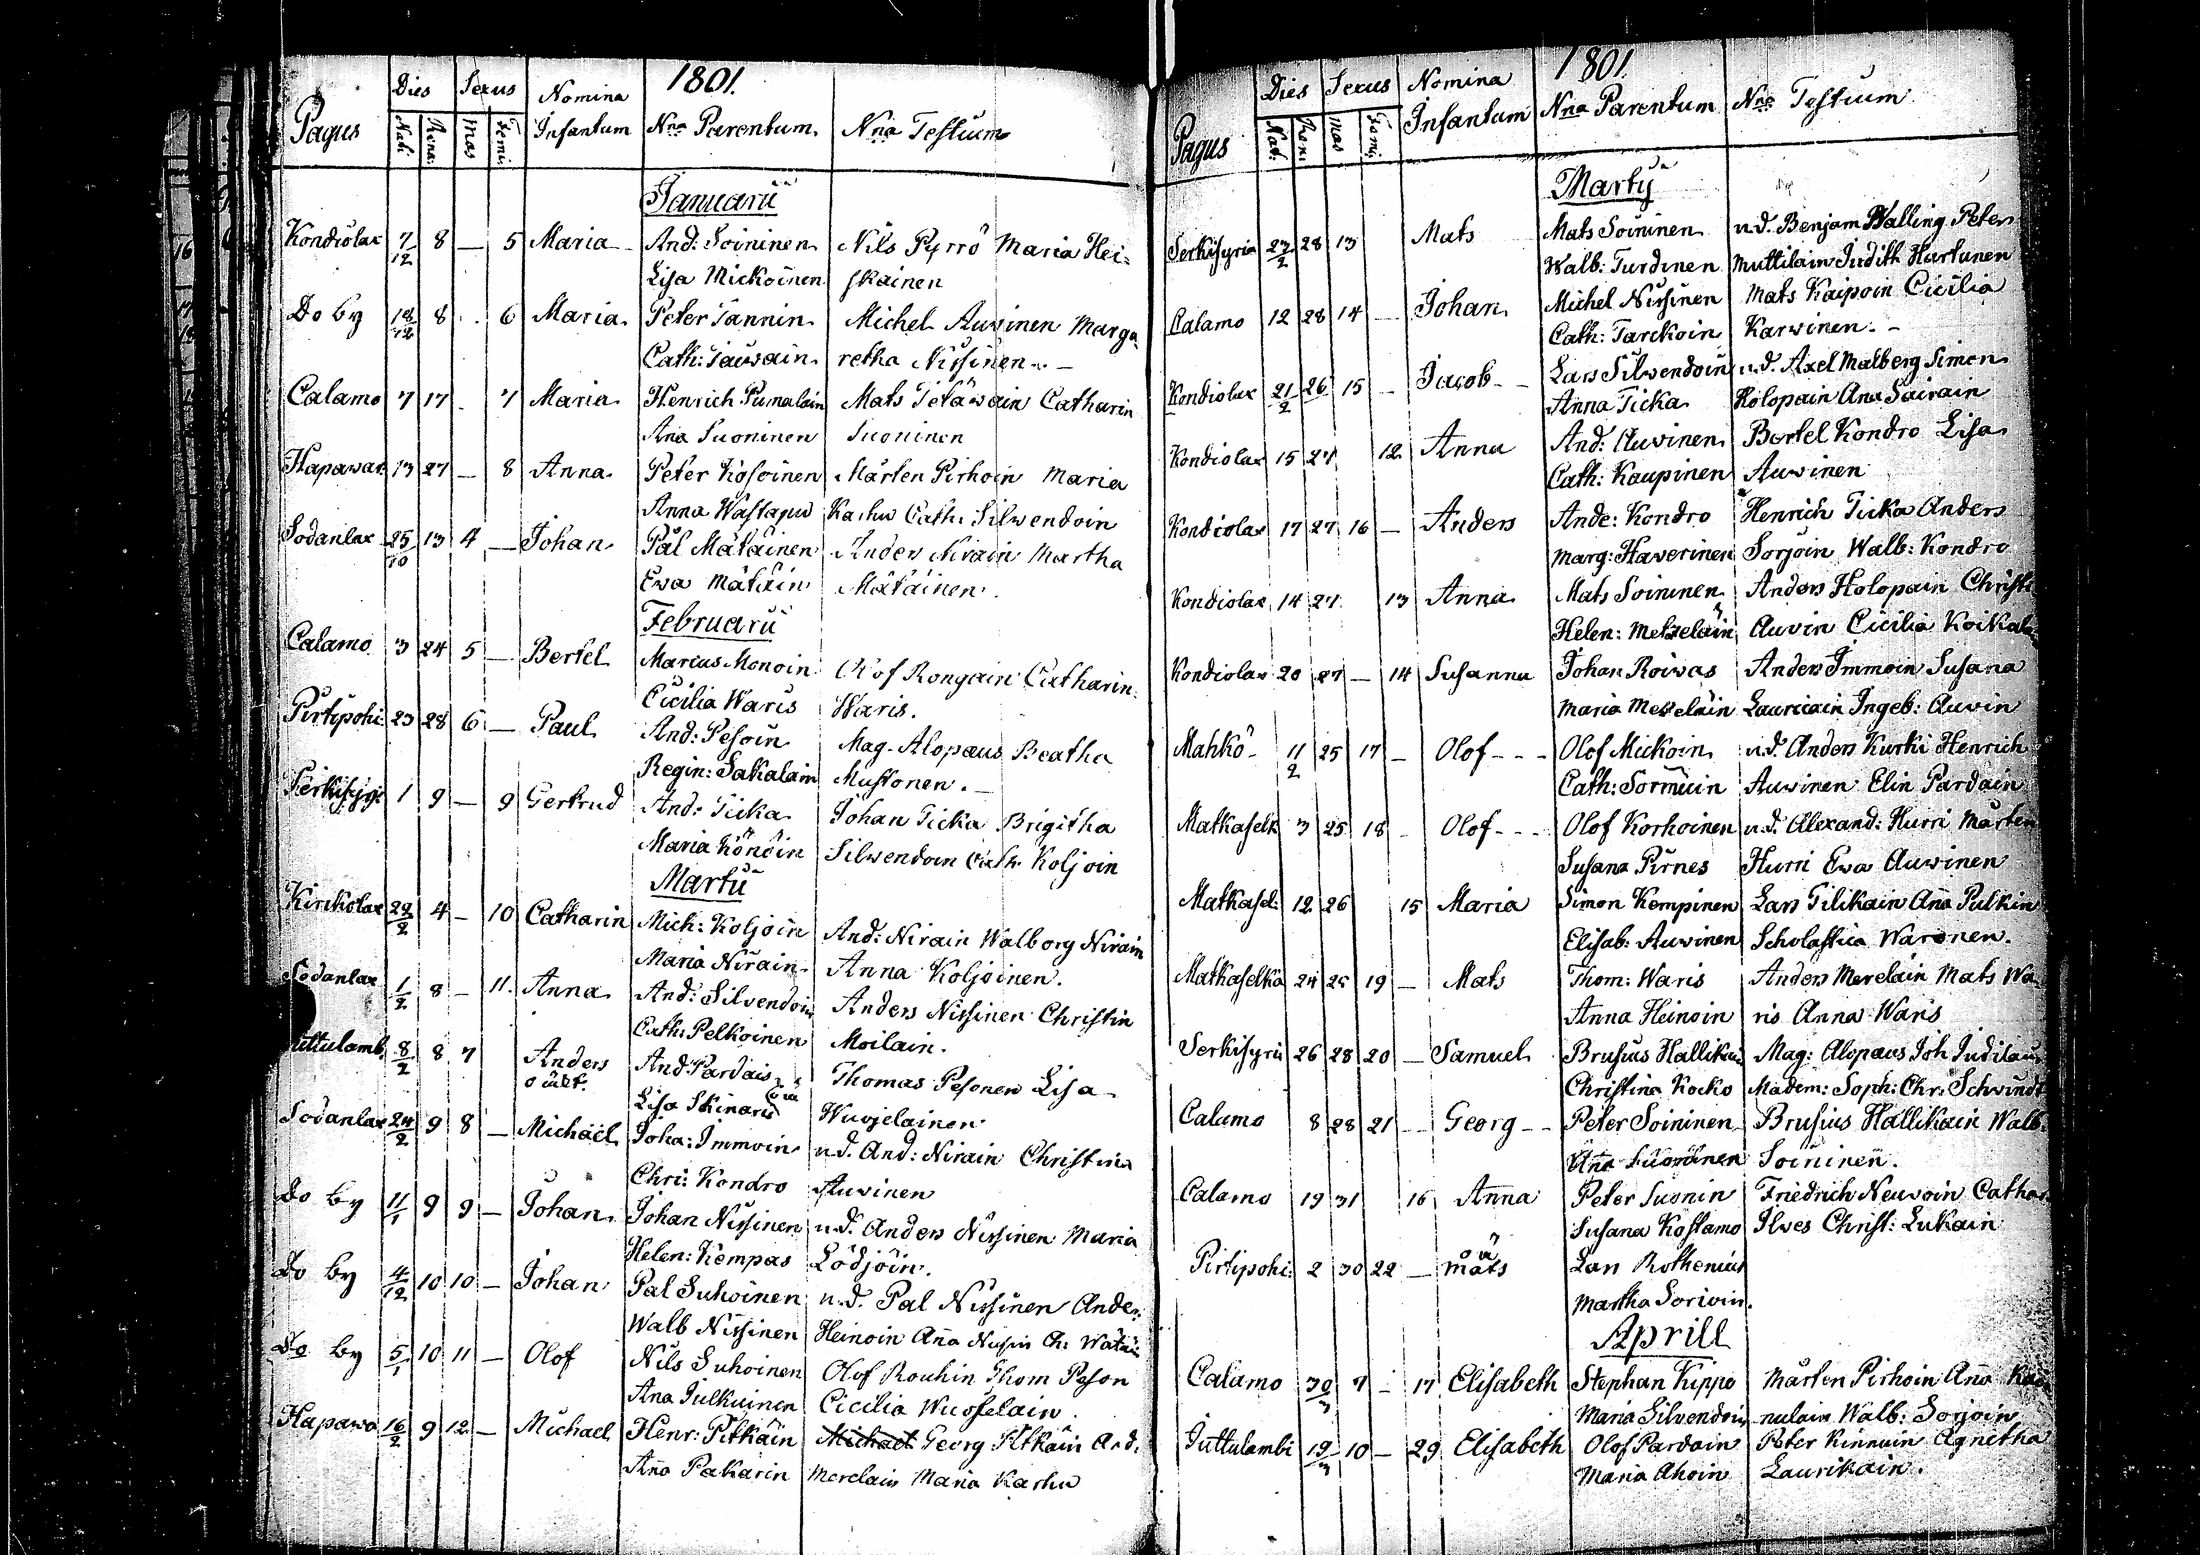 1801.
Pagus Dies Sexus Nomina Infantum Nna Parentum Nna Testium
Nati Rena: Mas Femi:
Januarii
Kondiolax 7/12 8 — 5 Maria And: Soininen Nils Pyrrö Maria Hei=
Lisa Mickoinen skainen
Do by 18/12 8 . 6 Maria Peter Tannin Michel Auvinen Marga
Cath: Tauwain retha Nissinen
Calamo 7 17 . 7 Maria Henrich Pumalain Mats Tetäwain Catharin
Ana Suoninen Suoninen
Hapawar 13 27 — 8 Anna Peter Kosoinen Mårten Pirhoin Maria
Anna Wastapu Karhu Cath: Silwendoin
Sodanlax 25/10 13 4 — Johan Pål Mätäinen Anders Nirain Martha
Ewa Mätäin Mätäinen.
Februarii
Calamo 3 24 5 — Bertel Marcus Monoin Olof Rongain Catharin
Cicilia Waris Waris.
Pirtipohi 23 28 6 — Paul And: Pesoin Mag. Alopæus Beatha
Regin: Sakalain Mustonen. —
Serkisyri 1 9 — 9 Gertrud And: Ticka Johan Ticka Brigitha
Maria Könöin Silwendoin Cath Koljoin
Martii
Kirckolax 22/2 4 — 10 Catharin Mich: Koljoin And: Nirain Walborg Nirain
Maria Nirain Anna Koljoinen.
Sodanlax 1/2 8 — 11. Anna And: Silvendoin Anders Nissinen Christin
Cath: Pelkoinen Moilain.
uttulamb 8/2 8 7 Anders And Pardais Thomas Pesonen Lisa
o äkt.
Lisa Skinari Wuojelainen
Sodanlax 24/2 9 8 — Michäel Joha: Immoin u.d. And: Nirain Christina
Chri: Kondro Auvinen
Do by 11/1 9 9 — Johan Johan Nissinen u.d. Anders Nissinen Maria
Helen: Kempas Lödjöin.
Do by 4/12 10 10 — Johan Pål Suhoinen u.d. Pål Nissinen Ander:
Walb Nissinen Heinoin Aña Nusin Ch:
Do by 5/1 10 11 — Olof Nils Suhoinen Olof Rouhin Thom Peson
Ana Julkuinen Cicilia Wuoselain
Hapawa 16/2 9 12 — Michael Henr: Pitkäin Michael Georg Pitkäin And.
Aña Pakarin Merelain Maria Karhu
1801.
Pagus Dies Sexus Nomina Infantum Nna Parentum Nna Testium
Nat. Rena: Mas Femi:
Martij
Serkisyria 27/2 28 13 Mats Mats Soininen u.d. Benjam Walling Peter
Walb: Turdinen Muttilain Judith Hartunen
Calamo 12 28 14 — Johan Michel Nissinen Mats Kaipoin Cicilia
Cath: Tarckoin Karwinen. –
Kondiolax 21/2 26 15 — Jacob – – Lars Silwendoin u.d. Axel Malberg Simon
Anna Ticka Holopain Ana Sairain
Kondiolax 15 27 12 Anna And: Auvinen Bertel Kondro Lisa
Cath: Kaupinen Auvinen
Kondiolax 17 27 16 — Anders Ande: Kondro Henrich Ticka Anders
Marg: Haverinen Sorjoin Walb: Kondro
Kondiolax 14 27 13 Anna Mats Soininen Anders Holopain Christi
Helen: Metzelain Auvin Cicilia Koikal
Kondiolax 20 27 — 14 Susanna Johan Roiwas Anders Immoin Susana
Maria Metzelain Lauricain Ingeb: Auvin
Mahkö 11/2 25 17 — Olof – – – Olof Mickoin u.d. Anders Kurki Henrich
Cath: Sormuin Auvinen Elin Pardain
Matkaselk 3 25 18 – Olof – – – Olof Korhoinen u.d. Alexand: Hurri Mårten
Susana Pirnes Hurri Ewa Auvinen
Matkasel: 12 26 15 Maria Simon Kempinen Lars Tilikain Aña Pulkin
Elisab: Auvinen Scholastica Waronen.
Matkaselkä 24 25 19 — Mats Thom: Waris Anders Merelain Mats Wa-
Anna Heinoin ris Anna Waris
Serkisyria 26 28 20 — Samuel Brusius Hallikain Mag: Alopæus Joh
Christina Kocko Madem: Soph: Chr: Schwindt
Calamo 8 28 21 – – Georg – – Peter Soininen Brusius Hallikain Walb:
Aña Suoninen Soininen.
Calamo 19 31 16 Anna Peter Suonin Friedrich Neuvoin Cathar
Susana Kostamo Ilves Christ: Lukain
Pirtipohi: 2 30 22 — oä
Mats Lars Rothenius
Martha Sorioin.
Aprill
Calamo 30/3 7 – 17 Elisabeth Stephan Kippo Mårten Pirhoin Aña
Maria Silvendoin nulain Walb: Sorjoin
Juttulambi 19/3 10 – 29 Elisabeth Olof Pardain Peter Kinnuin Agnetha
Maria Ahoin Laurikain.